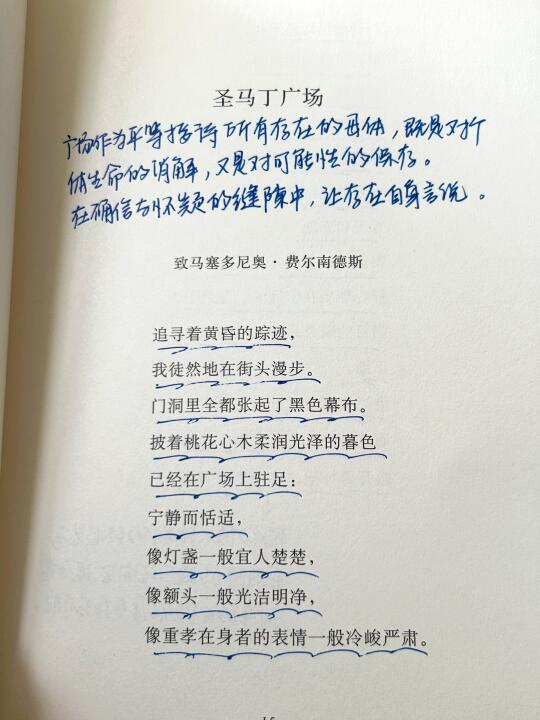 圣马丁广场
广场作为平等接待所有存在的母体，既是对个
体生命的消解，又是对可能性的保存。
在确信与怀疑的缝隙中，让存在自身言说。
致马塞多尼奥·费尔南德斯
追寻着黄昏的踪迹，
我徒然地在街头漫步。
门洞里全都张起了黑色幕布。
披着桃花心木柔润光泽的暮色
已经在广场上驻足：
宁静而恬适，
像灯盏一般宜人楚楚，
像额头一般光洁明净，
像重孝在身者的表情一般冷峻严肃。